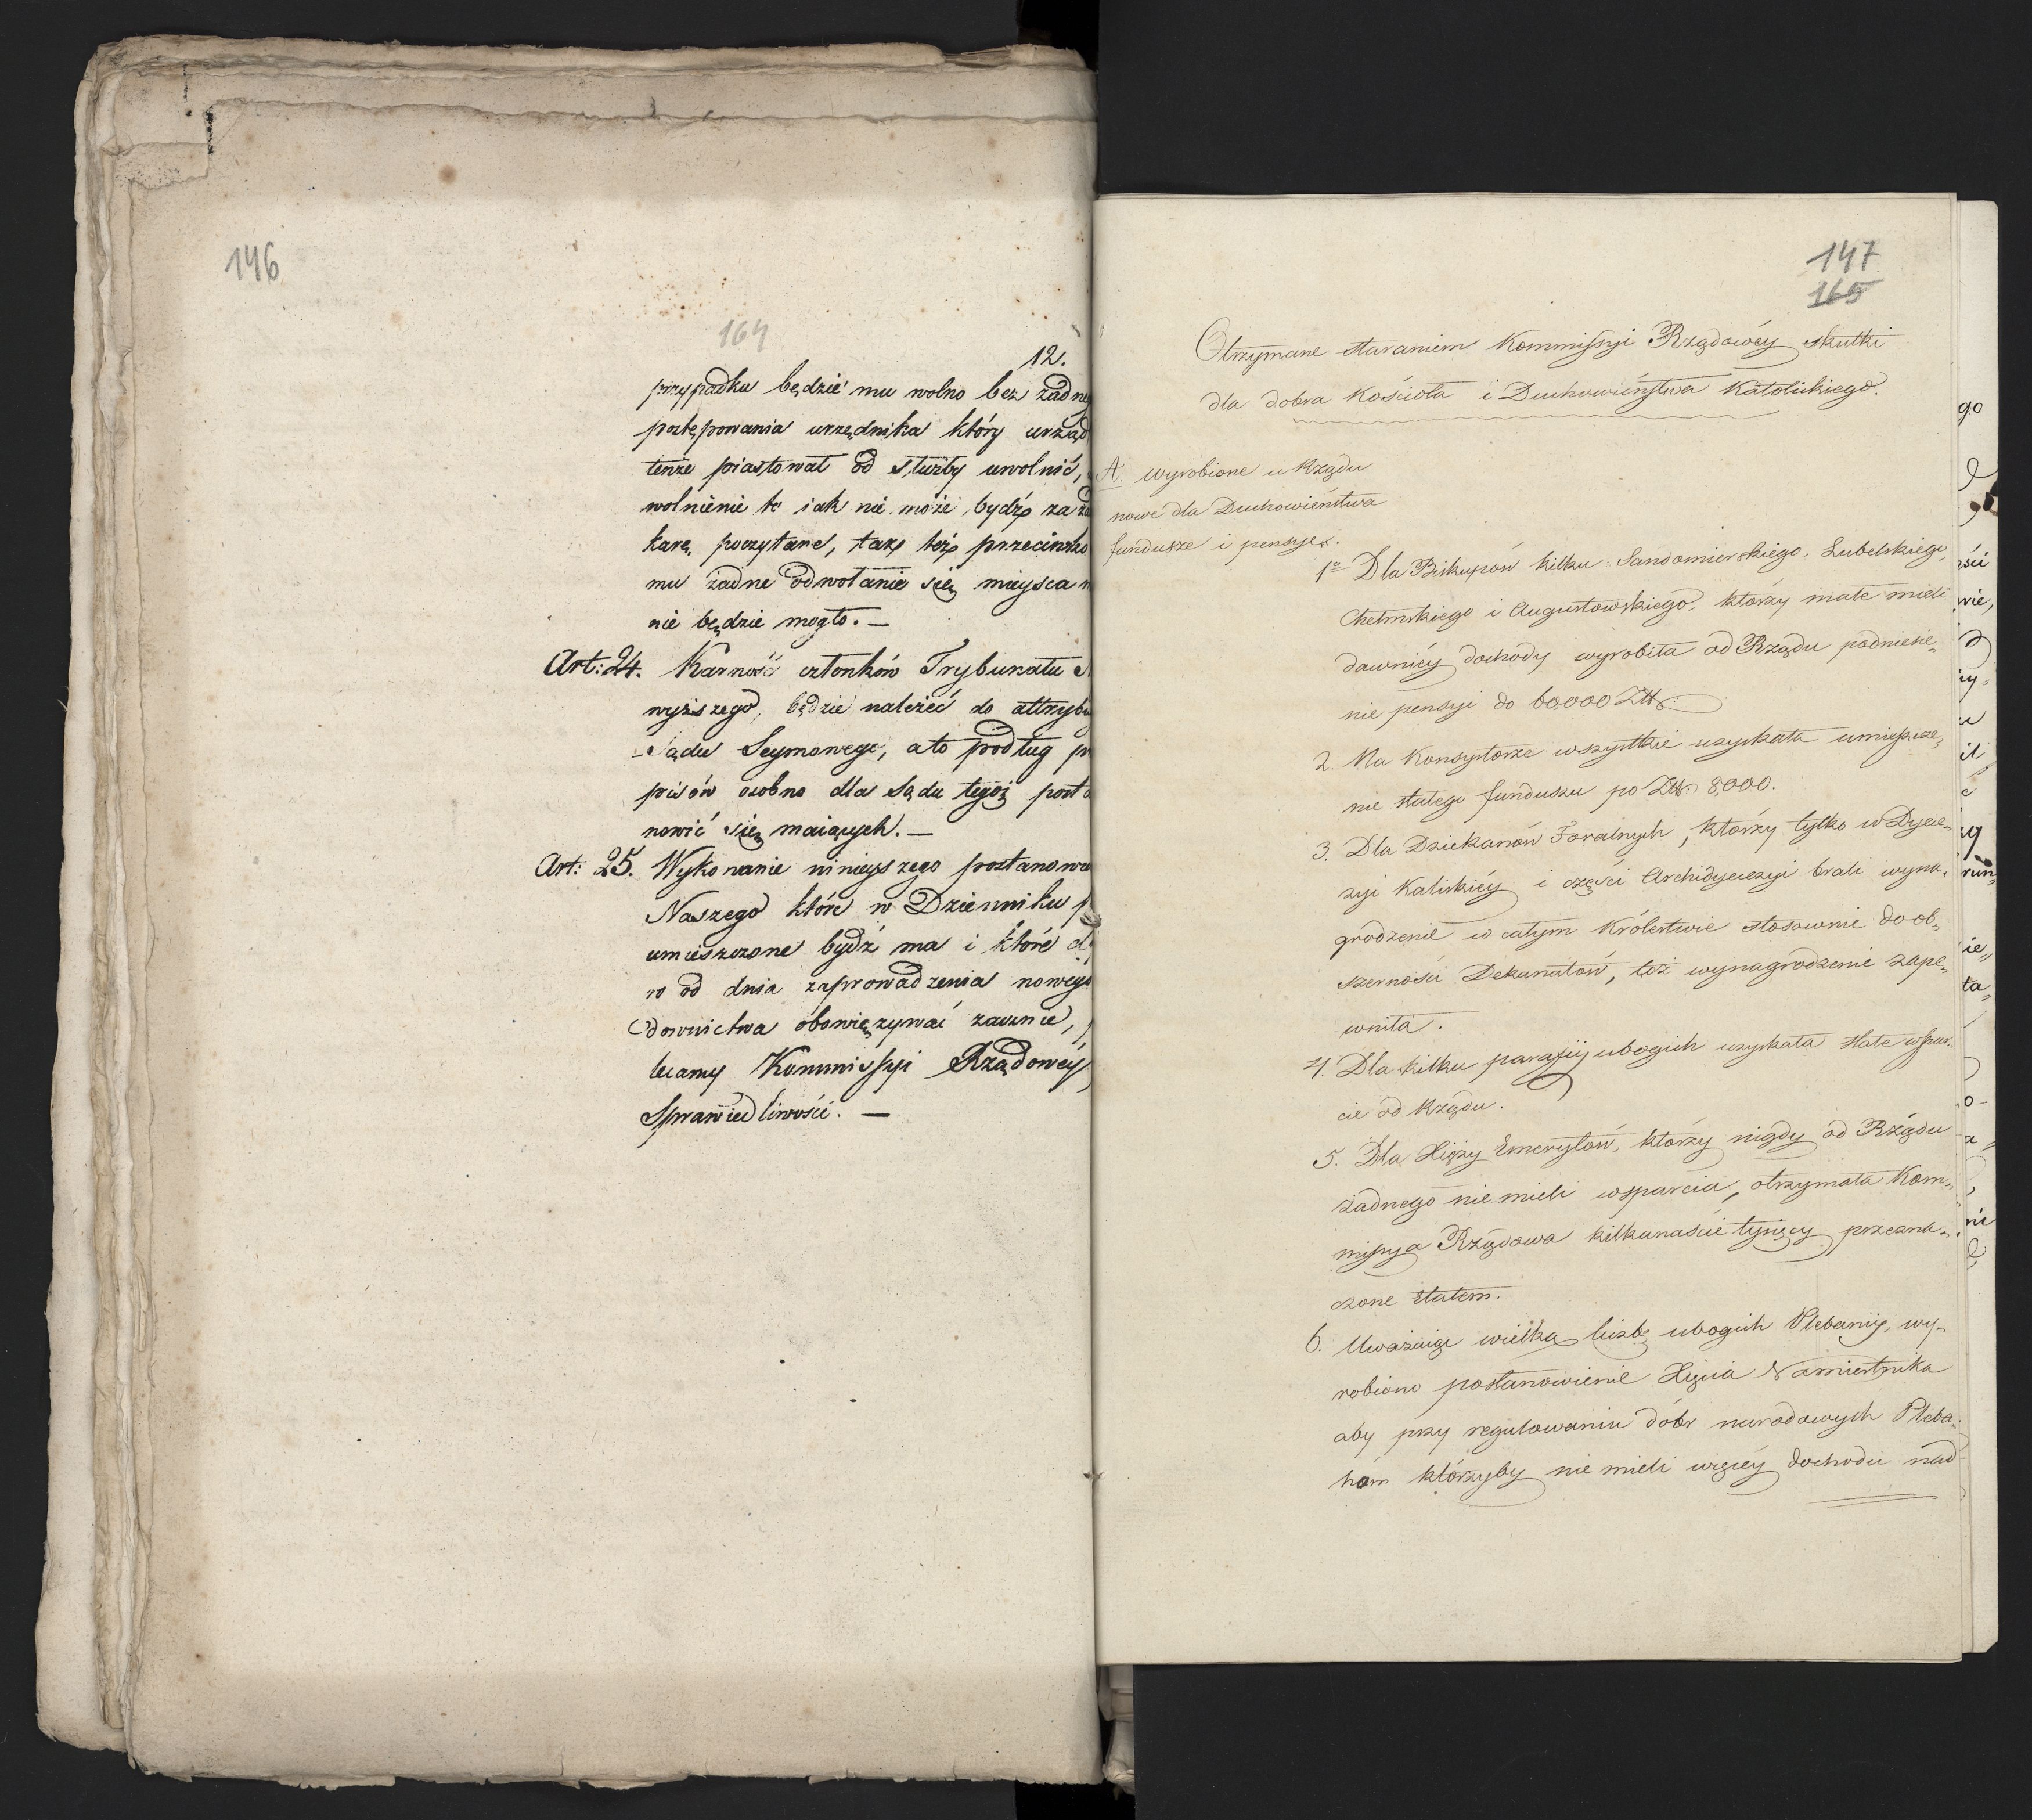 146
164
12.
przypadku będzie mu wolno bez żadne
postępowania urzędnika który urząd
tenże piastował od służby uwolnić,
wolnienie to iak nie może bydź za
karę, poczytane, tak też przeciwko
mu żadne odwołanie się mieysca
nie będzie mogło. —
Art: 24. Karność członków Trybunału
wyższego, będzie należeć do attrybu
Sądu Seymowego, a to podług p
pisów osobno dla sądu tegoż post
nowić się maiących. —
Art: 25. Wykonanie ninieyszego postanowie
Naszego które w Dzienniku p
umieszczone bydź ma i które
ro od dnia zaprowadzenia nowego
downictwa obowięzywać zacznie,
lecamy Kommissyi Rządowéy
Sprawiedliwości. —
147
165
Otrzymane staraniem Kommissyi Rządowéy skutki
dla dobra Kościoła i Duchowieństwa Katolickiego.
A. wyrobione u Rządu
nowe dla Duchowieństwa
fundusze i pensye.
1º Dla Biskupów kilku: Sandomierskiego, Lubelskiego,
Chełmskiego i Augustowskiego, którzy małe mieli
dawniéy dochody wyrobiła od Rządu podniesie„
nie pensyi do 60,000 Złł.
2. Na Konsystorze wszystkie uzyskała umieszcze„
nie stałego funduszu po Złł. 8,000.
3. Dla Dziekanów Foralnych, którzy tylko w Dyece„
zyi Kaliskiéy i części Archidyecezyi brali wyna„
grodzenie w całym Królestwie stosownie do ob„
szerności Dekanatów, też wynagrodzenie zape„
wniła.
4. Dla kilku parafiy ubogich uzyskała stałe wspar„
cie od Rządu.
5. Dla Xięży Emerytów, którzy nigdy od Rządu
żadnego nie mieli wsparcia, otrzymała Kom„
missya Rządowa kilkanaście tysięcy przezna„
czone etatem.
6. Uważaiąc wielką liczbę ubogich Plebaniy, wy„
robiono postanowienie Xięcia Namiestnika
aby przy regulowaniu dóbr narodowych Pleba„
nom którzyby nie mieli więcéy dochodu nad